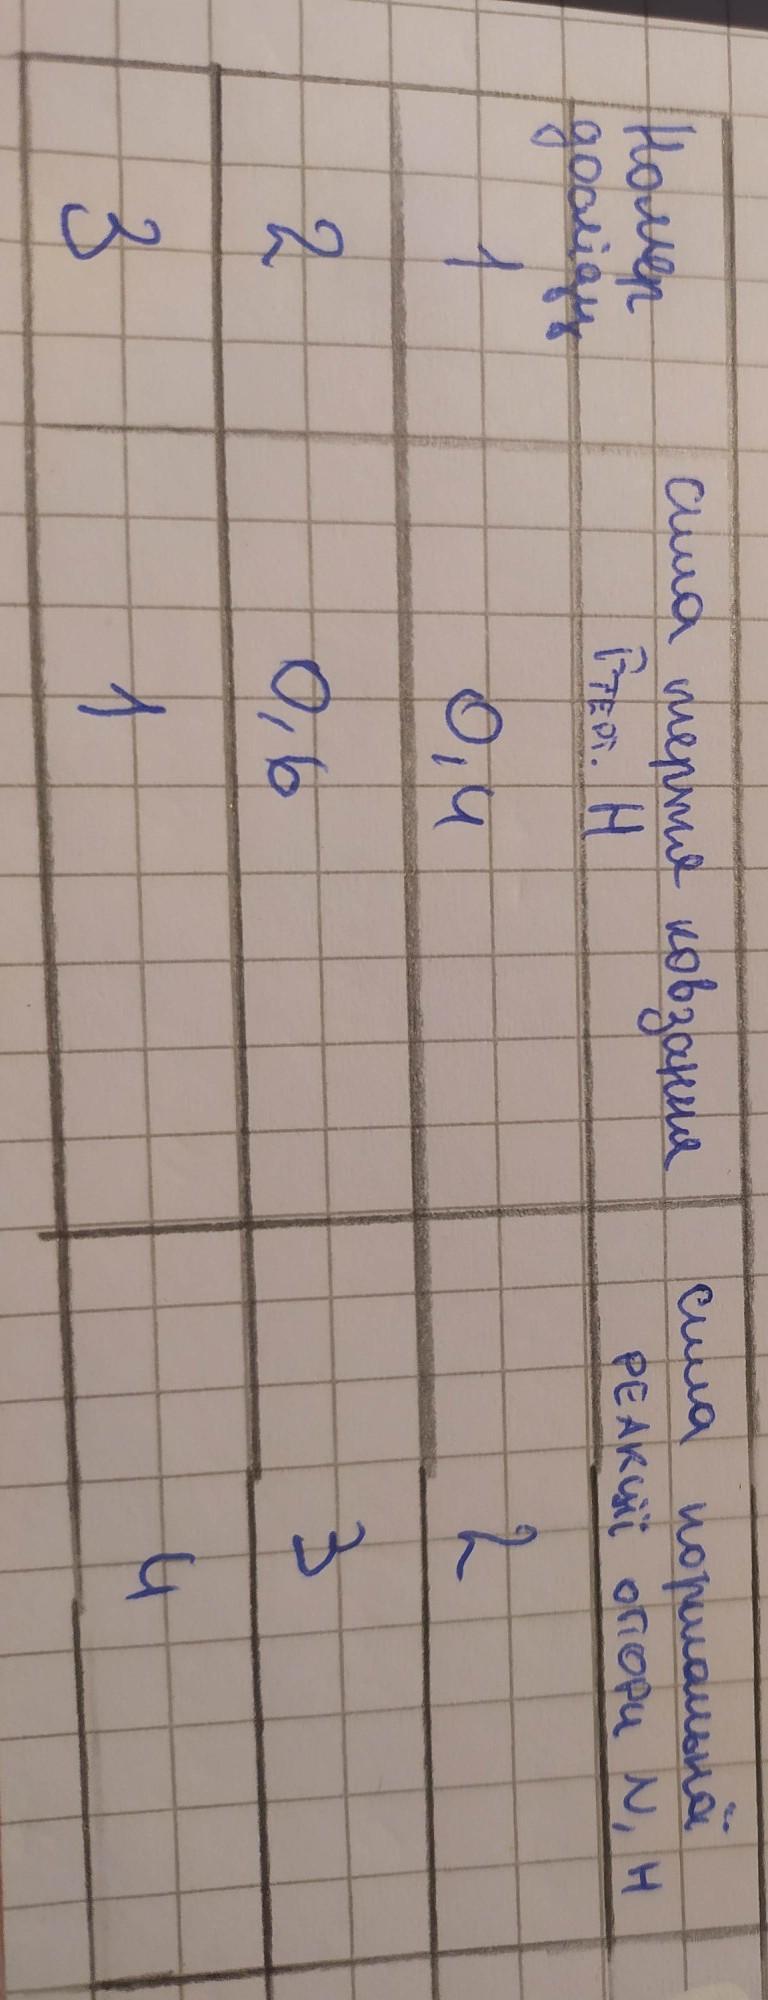 Номер
досліду
сила тертя ковзання
Fтерт. Н
сила нормальної
РЕАКЦІЇ ОПОРИ N, Н
1
0,4
2
2
0,6
3
3
1
4